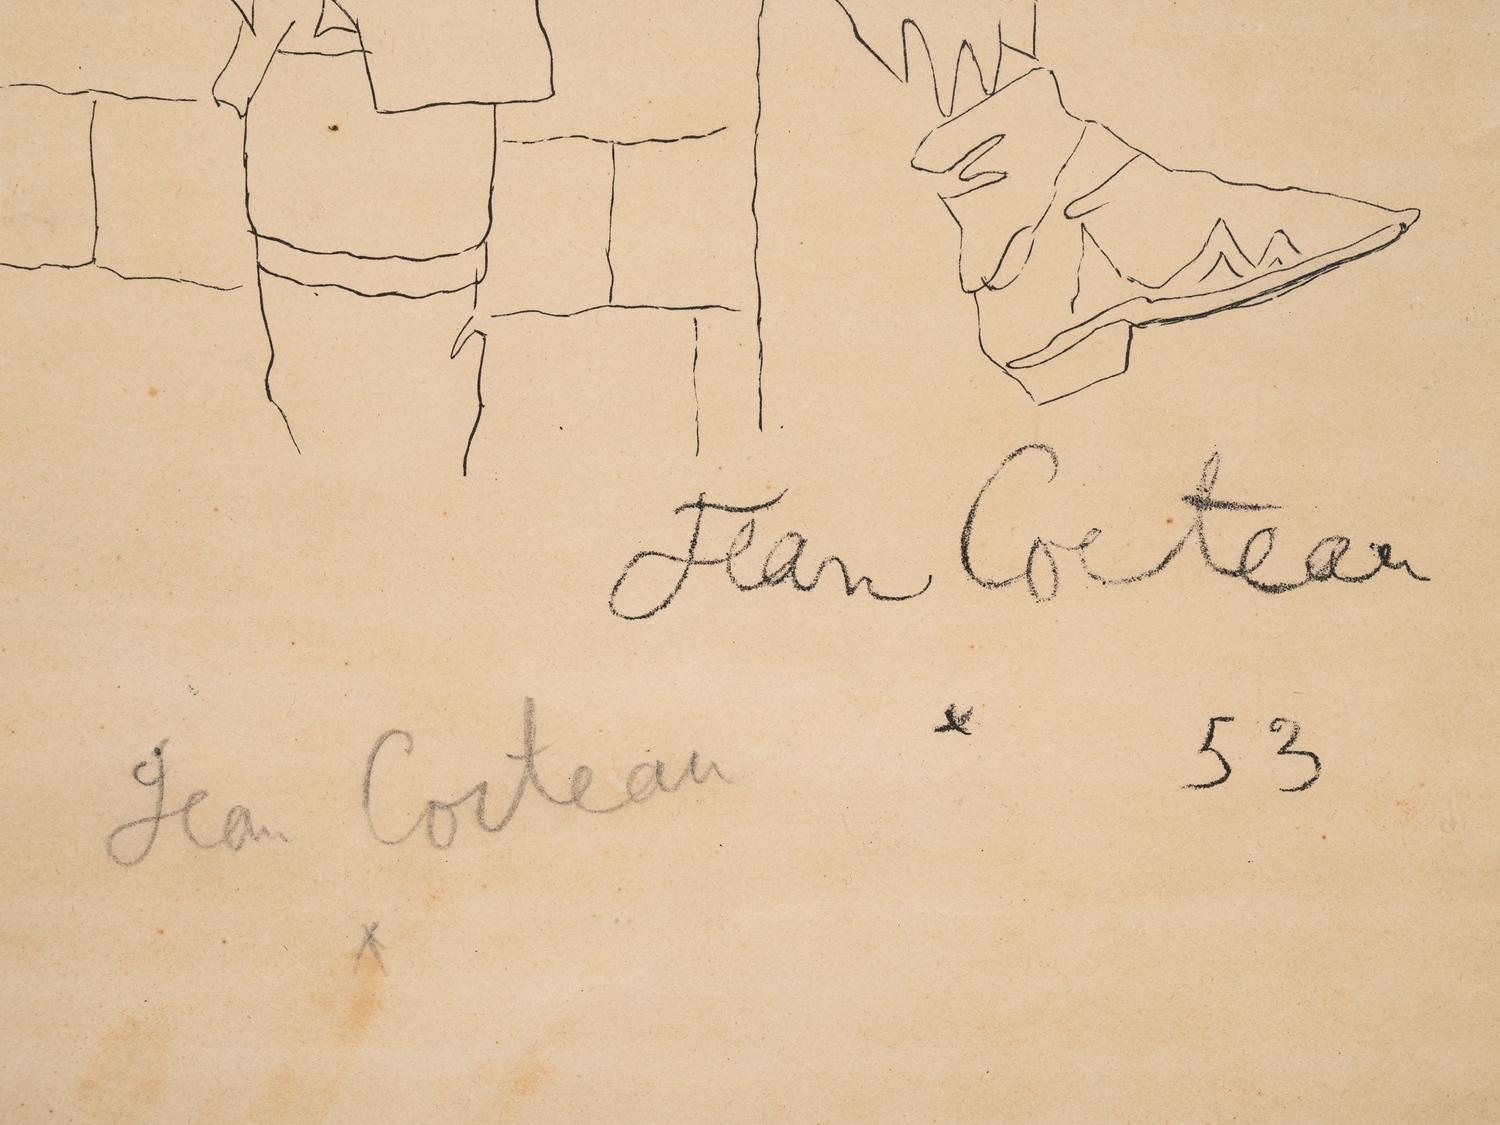 Jean Cocteau
* 53
Jean Cocteau
*